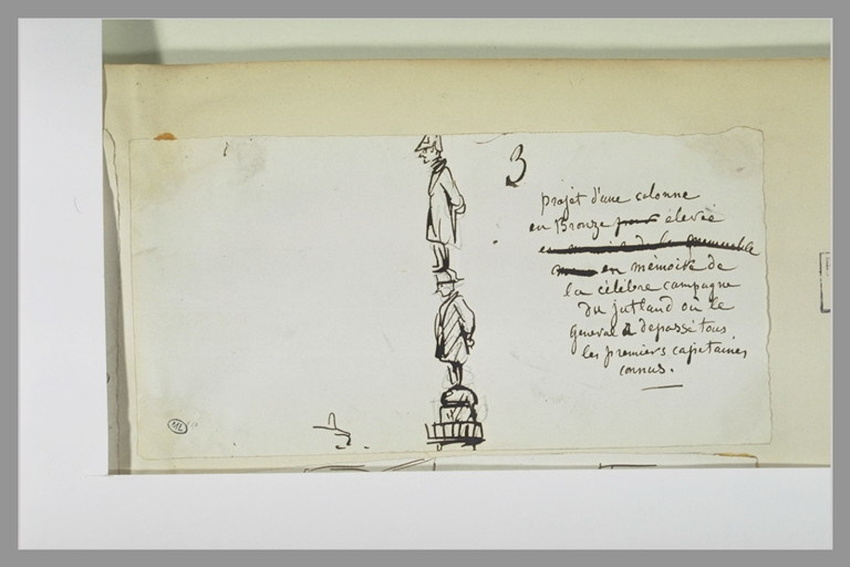 3
projet d'une colonne
en Bronze élevée
en mémoire de
la célèbre campagne
du jutland où le
general a depassé tous
les premiers capitaines
connus.
ML